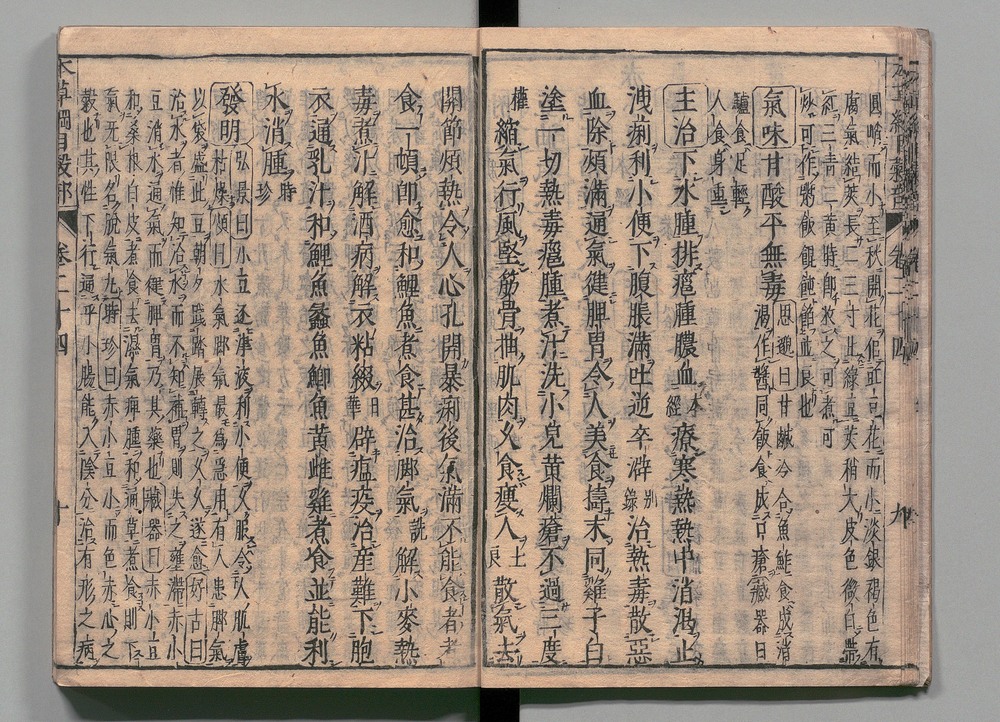 圓嗆而小至秋開花佀豇豆花而小淡銀褐色有
腐氣結莢長二三寸比綠豆莢稍大皮色微白帶
紅三青二黃時即收之可煮可
炒可作粥飯餛飩餡並良也
氣味甘酸平無毒思邈曰甘鹹冷合魚鮓食成消
渴作醬同飯食成口瘡藏器曰
驢食足輕
人食身重
主治下水腫排癰腫膿血本經療寒熱熱中消渴止
洩痢利小便下腹脹滿吐逆卒澼別錄治熱毒散惡
血除煩滿通氣健脾胃令人美食搗末同雞子白
塗一切熱毒癰腫煮汁洗小兒黃爛瘡不過三度
權縮氣行風堅筋骨抽肌肉久食瘦人士良散氣去
關節煩熱令人心孔開暴痢後氣滿不能食者煮
食一頓即愈和鯉魚煮食甚治脚氣詵解小麥熱
毒煮汁解酒病解衣粘綴日華辟瘟疫治產難下胞
衣通乳汁和鯉魚蠡魚鯽魚黃雌雞煮食並能利
水消腫時珍
發明弘景曰小豆逐津液利小便久服令人肌膚
枯燥頌曰水氣脚氣最為急用有人患脚氣
以袋盛此豆朝夕踐踏展轉之久久遂愈好古曰
治水者惟知治水而不知補胃則失之壅滯赤小
豆消水通氣而健脾胃乃其藥也藏器曰赤小豆
和桑根白皮煮食去濕氣痺腫和通草煮食則下
氣無限名脫氣丸時珍曰赤小豆小而色赤心之
穀也其性下行通乎小腸能入陰分治有形之病
本草綱目穀部
卷二十四
十
卷二十四
九